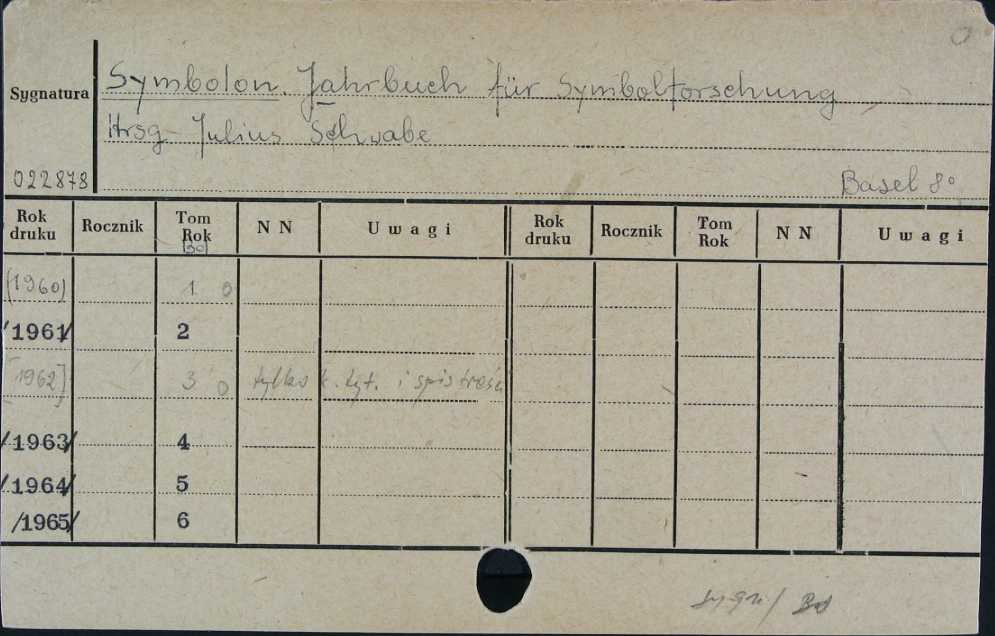 Symbolon. Jahrbuch für Symbolforschung
Sygnatura
Hrsg. Julius Schwabe
022878 Basel 8°
Rok druku Rocznik Tom Rok NN Uwagi Rok druku Rocznik Tom Rok NN Uwagi
(1960) 1 0
/1961/ 2
[1962] 3 0 tylko k. tyt. i spis treści
/1963/ 4
/1964/ 5
/1965/ 6